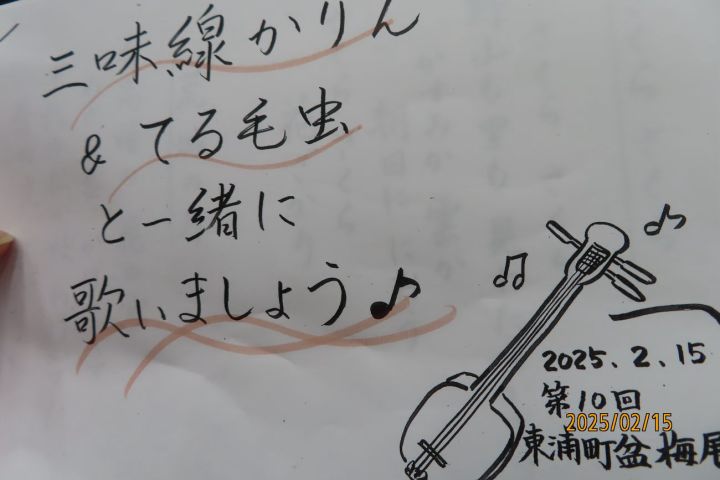 三味線かりん
& てる毛虫
と一緒に
歌いましょう♪
2025.2.15
第10回
2025/02/15
東浦町盆梅展